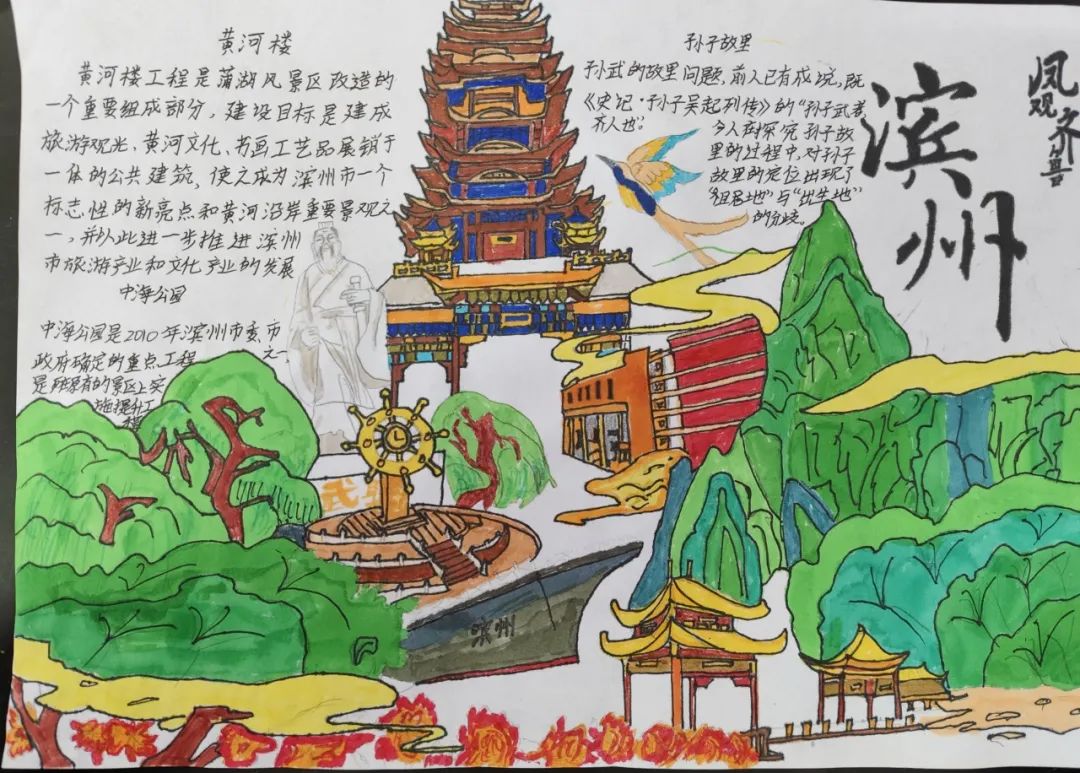 黄河楼
黄河楼工程是蒲湖风景区改造的
一个重要组成部分，建设目标是建成
旅游观光、黄河文化、书画工艺品展销于
一体的公共建筑，使之成为滨州市一个
标志性的新亮点和黄河沿岸重要景观之
一，并以此进一步推进滨州
市旅游产业和文化产业的发展
中海公园
中海公园是2010年滨州市委、市
政府确定的重点工程之一
是在原有的景区上实
施提升工
程
孙子故里
孙武的故里问题，前人已有成说，既
《史记·孙子吴起列传》的“孙子武者，
齐人也”。
今人在探究孙子故
里的过程中，对孙子
故里的定位出现了
“祖居地”与“出生地”
的分歧。
滨州
凤观齐鲁
武圣
滨州